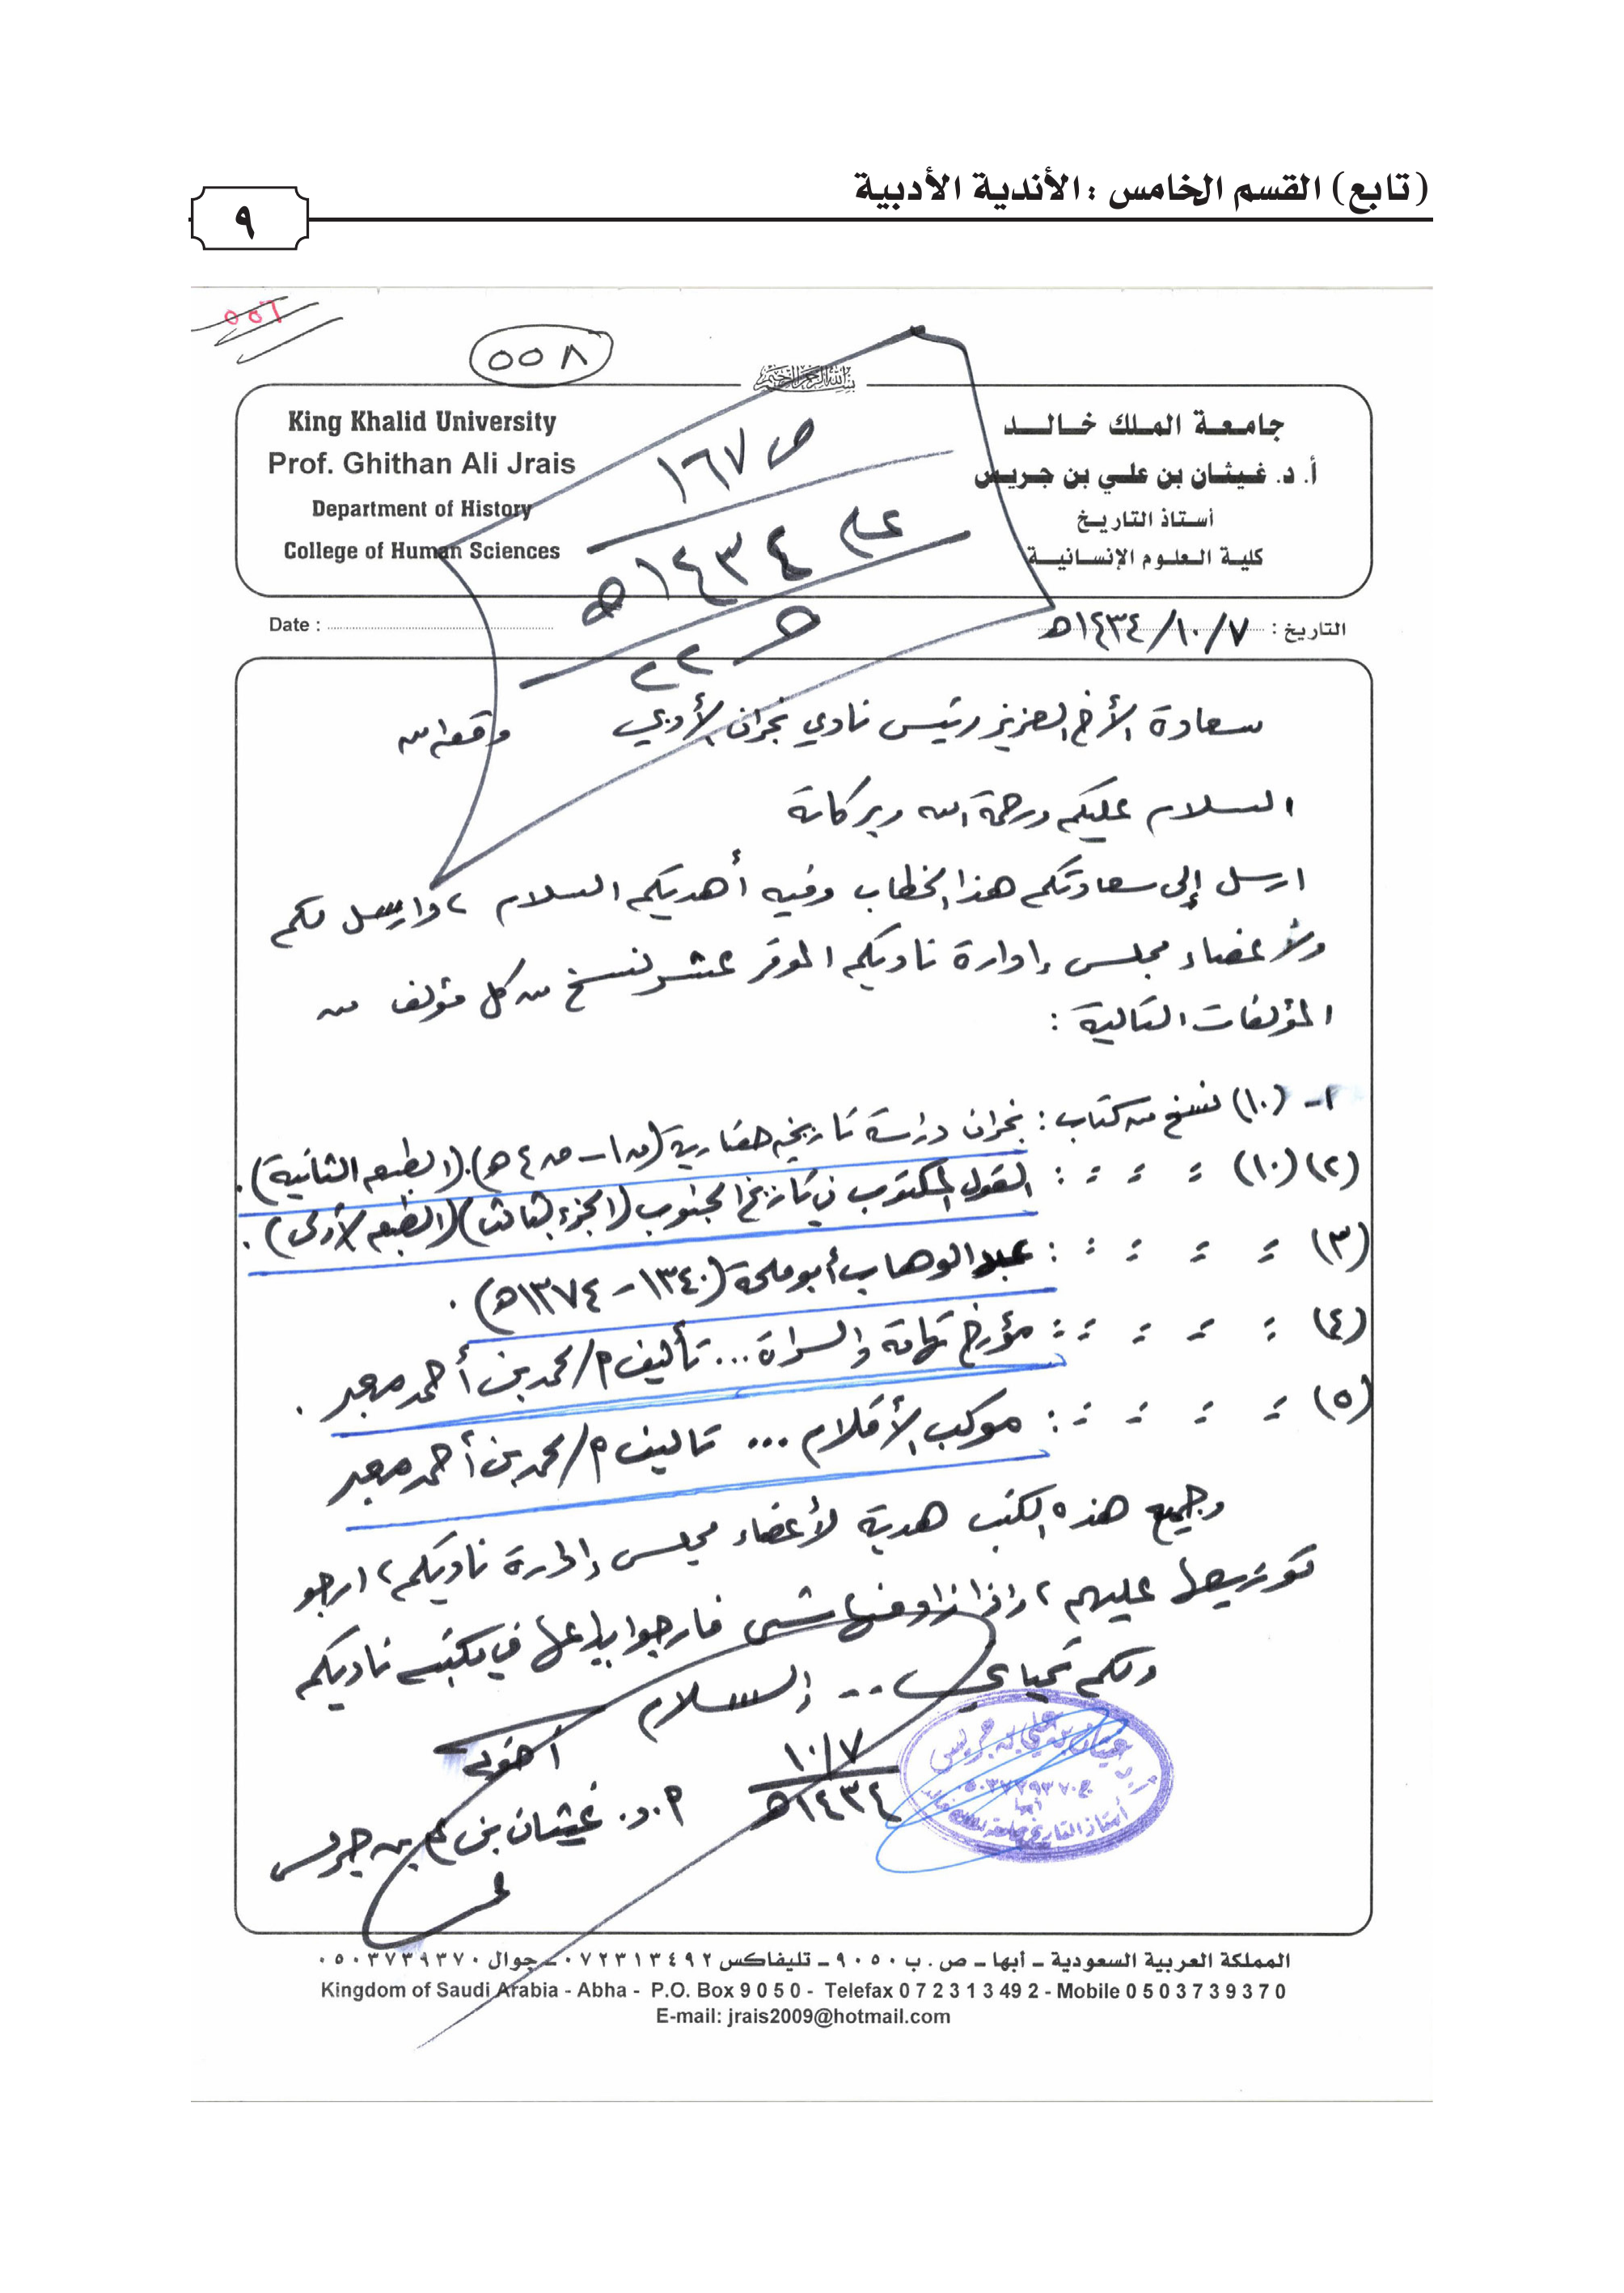 (تابع) القسم الخامس : الأندية الأدبية
٩
٥٥٦
٥٥٨
بسم الله الرحمن الرحيم
King Khalid University
Prof. Ghithan Ali Jrais
Department of History
College of Human Sciences
جامعة الملك خالد
أ. د. غيثان بن علي بن جريس
أستاذ التاريخ
كلية العلوم الإنسانية
ص ١٦٧
عام ١٤٣٤هـ
حـ ٢٢
Date :
التاريخ : ١٤٣٤/١٠/٧هـ
سعادة الأخ العزيز رئيس نادي نجران الأدبي وفقه الله
السلام عليكم ورحمة الله وبركاته
ارسل إلى سعادتكم هذا الخطاب وفيه أهديكم السلام ، وارسل لكم
ولأعضاء مجلس إدارة ناديكم الموقر عشر نسخ من كل مؤلف من
المؤلفات التالية :
١- (١٠) نسخ من كتاب : نجران دراسة تاريخية حضارية (ق١ - ق٤هـ). (الطبعة الثانية) .
(٢) (١٠) = = = : القول المكتوب في تاريخ الجنوب (الجزء الثالث) (الطبعة الأولى) .
(٣) = = = = : عبد الوهاب أبو ملحة (١٣٤٠ - ١٣٧٤هـ) .
(٤) = = = = : مؤرخ تهامة والسراة ... تأليف م/ محمد بن أحمد معبر .
(٥) = = = = : موكب الأقلام ... تاليف م/ محمد بن أحمد معبر
وجميع هذه الكتب هدية لأعضاء مجلس إدارة ناديكم ، ارجو
توزيعها عليهم ، وإذا زاد منها شيء فارجوا إيداعها في مكتبة ناديكم
ولكم تحياتي .. والسلام
أخوكم
١٠/٧
١٤٣٤هـ
أ.د. غيثان بن علي بن جريس
غيثان بن علي بن جريس
أبها
أستاذ التاريخ جامعة الملك خالد
المملكة العربية السعودية ـ أبها ـ ص . ب ٩٠٥٠ ـ تليفاكس ٠٧٢٣١٣٤٩٢ ـ جوال ٠٥٠٣٧٣٩٣٧٠
Kingdom of Saudi Arabia - Abha - P.O. Box 9 0 5 0 - Telefax 0 7 2 3 1 3 492 - Mobile 0 5 0 3 7 3 9 3 7 0
E-mail: jrais2009@hotmail.com